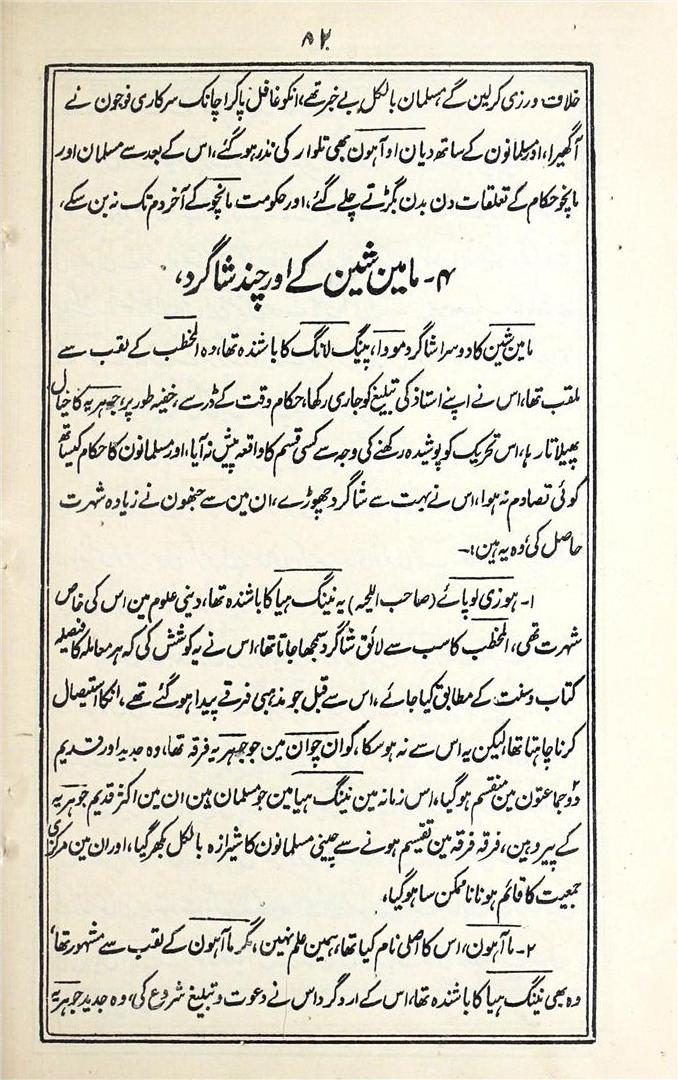 ۸۲
خلاف ورزی کرلین گے مسلمان بالکل بے خبر تھے، انکو غافل پاکر اچانک سرکاری فوجون نے
آگھیرا، اور مسلمانون کے ساتھ دیان او آہون بھی تلوار کی نذر ہوگئے، اس کے بعد سے مسلمان اور
مانچو حکام کے تعلقات دن بدن بگڑتے چلے گئے، اور حکومت مانچو کے آخر دم تک نہ بن سکے،
۴- مامین شین کے اور چند شاگرد،
مامین شین کا دوسرا شاگرد مودا، پینگ لانگ کا باشندہ تھا، وہ الخطب کے لقب سے
ملقب تھا، اس نے اپنے استاذ کی تبلیغ کو جاری رکھا، حکام وقت کے ڈر سے، خفیہ طور پر، جہریہ کا خیال
پھیلاتا رہا، اس تحریک کو پوشیدہ رکھنے کی وجہ سے کسی قسم کا واقعہ پیش نہ آیا، اور مسلمانون کا حکام کیساتھ
کوئی تصادم نہ ہوا، اس نے بہت سے شاگرد چھوڑے، ان مین سے جنھون نے زیادہ شہرت
حاصل کی، وہ یہ ہین:-
۱- ہوزی لوپائے (صاحب اللحیہ) یہ نینگ ہیا کا باشندہ تھا، دینی علوم مین اس کی خاص
شہرت تھی، الخطب کا سب سے لائق شاگرد سمجھا جاتا تھا، اس نے یہ کوشش کی کہ ہر معاملہ کا فیصلہ
کتاب و سنت کے مطابق کیا جائے، اس سے قبل جو مذہبی فرقے پیدا ہوگئے تھے، انکا استیصال
کرنا چاہتا تھا، لیکن یہ اس سے نہ ہوسکا، کوان چوان مین جو جہریہ فرقہ تھا، وہ جدید اور قدیم
دو جماعتون مین منقسم ہوگیا، اس زمانہ مین نینگ ہیا مین جو مسلمان ہین ان مین اکثر قدیم جوہریہ
کے پیرو ہین، فرقہ فرقہ مین تقسیم ہونے سے چینی مسلمانون کا شیرازہ بالکل بکھر گیا، اور ان مین مرکزی
جمعیت کا قائم ہونا ناممکن سا ہوگیا،
۲- ما آہون، اس کا اصلی نام کیا تھا، ہمین علم نہین، مگر ما آہون کے لقب سے مشہور تھا،
وہ بھی نینگ ہیا کا باشندہ تھا، اس کے ارد گرد اس نے دعوت و تبلیغ شروع کی، وہ جدید جوہریہ